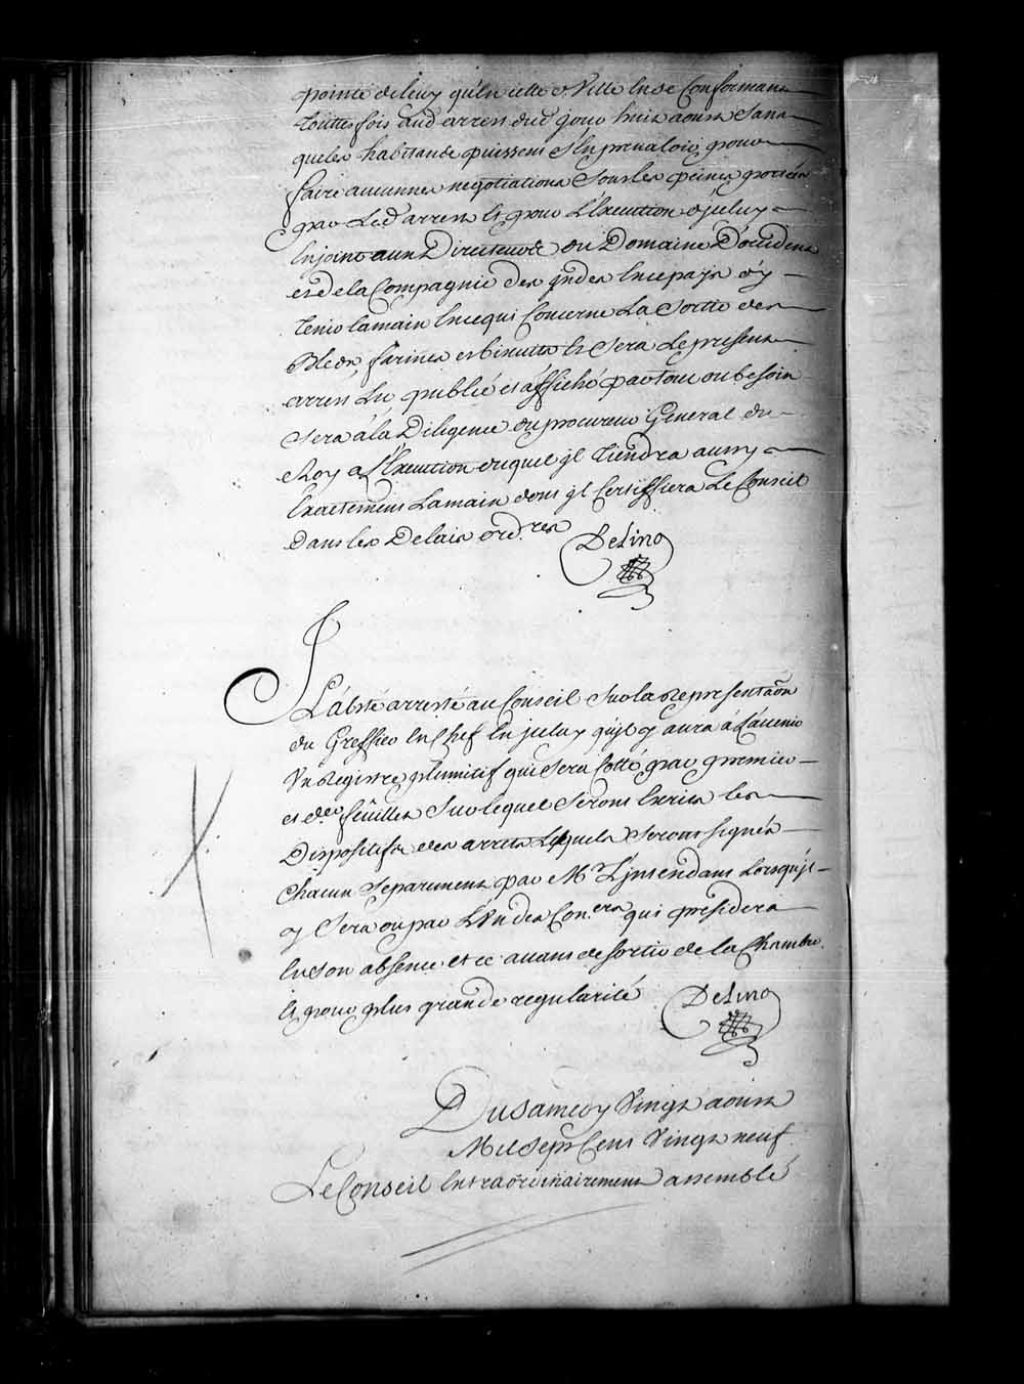 pointe de levy qu'en cette ville en se Conformant
touttes fois aud arrest dud jour huit aoust sans
que les habitants puissent s'en prevaloir pour
faire aucunnes negotiations Sous les peines portées
par Led arrest Et pour L'Execution d'jceluy
Enjoint aux Directeurs du Domaine D'occident
et de la Compagnie des jndes En ce païs d'y
tenir la main En ce qui Concerne La Sortie des
Bleds, farines et biscuits Et Sera Le present
arrest Lu publié et affiché par tout ou besoin
Sera à la Diligence du procureur General du
Roy a L'Execution duquel jl tiendra aussy
Exactement La main dont jl Certiffiera Le Conseil
Dans les Delais ord.res
Delino
IL a Esté arresté au Conseil Sur la Representãon
du Greffier En Chef En jceluy qu'jl y aura à L'avenir
Un Registre plumitif qui Sera Cotté par premier
et der feüilles Sur lequel Seront Ecrits les
Dispositifs des arrets Lesquels Seront signés
Chacun Separement par Mr L'jntendant Lorsqu'jl
y Sera ou par L'Un des Con.ers qui presidera
En Son absence et ce avant de sortir de la Chambre
Et pour plus grande regularité
Delino
Du Samedy Vingt aoust
Mil Sept Cent Vingt neuf
Le Conseil Extraordinairement assemblé